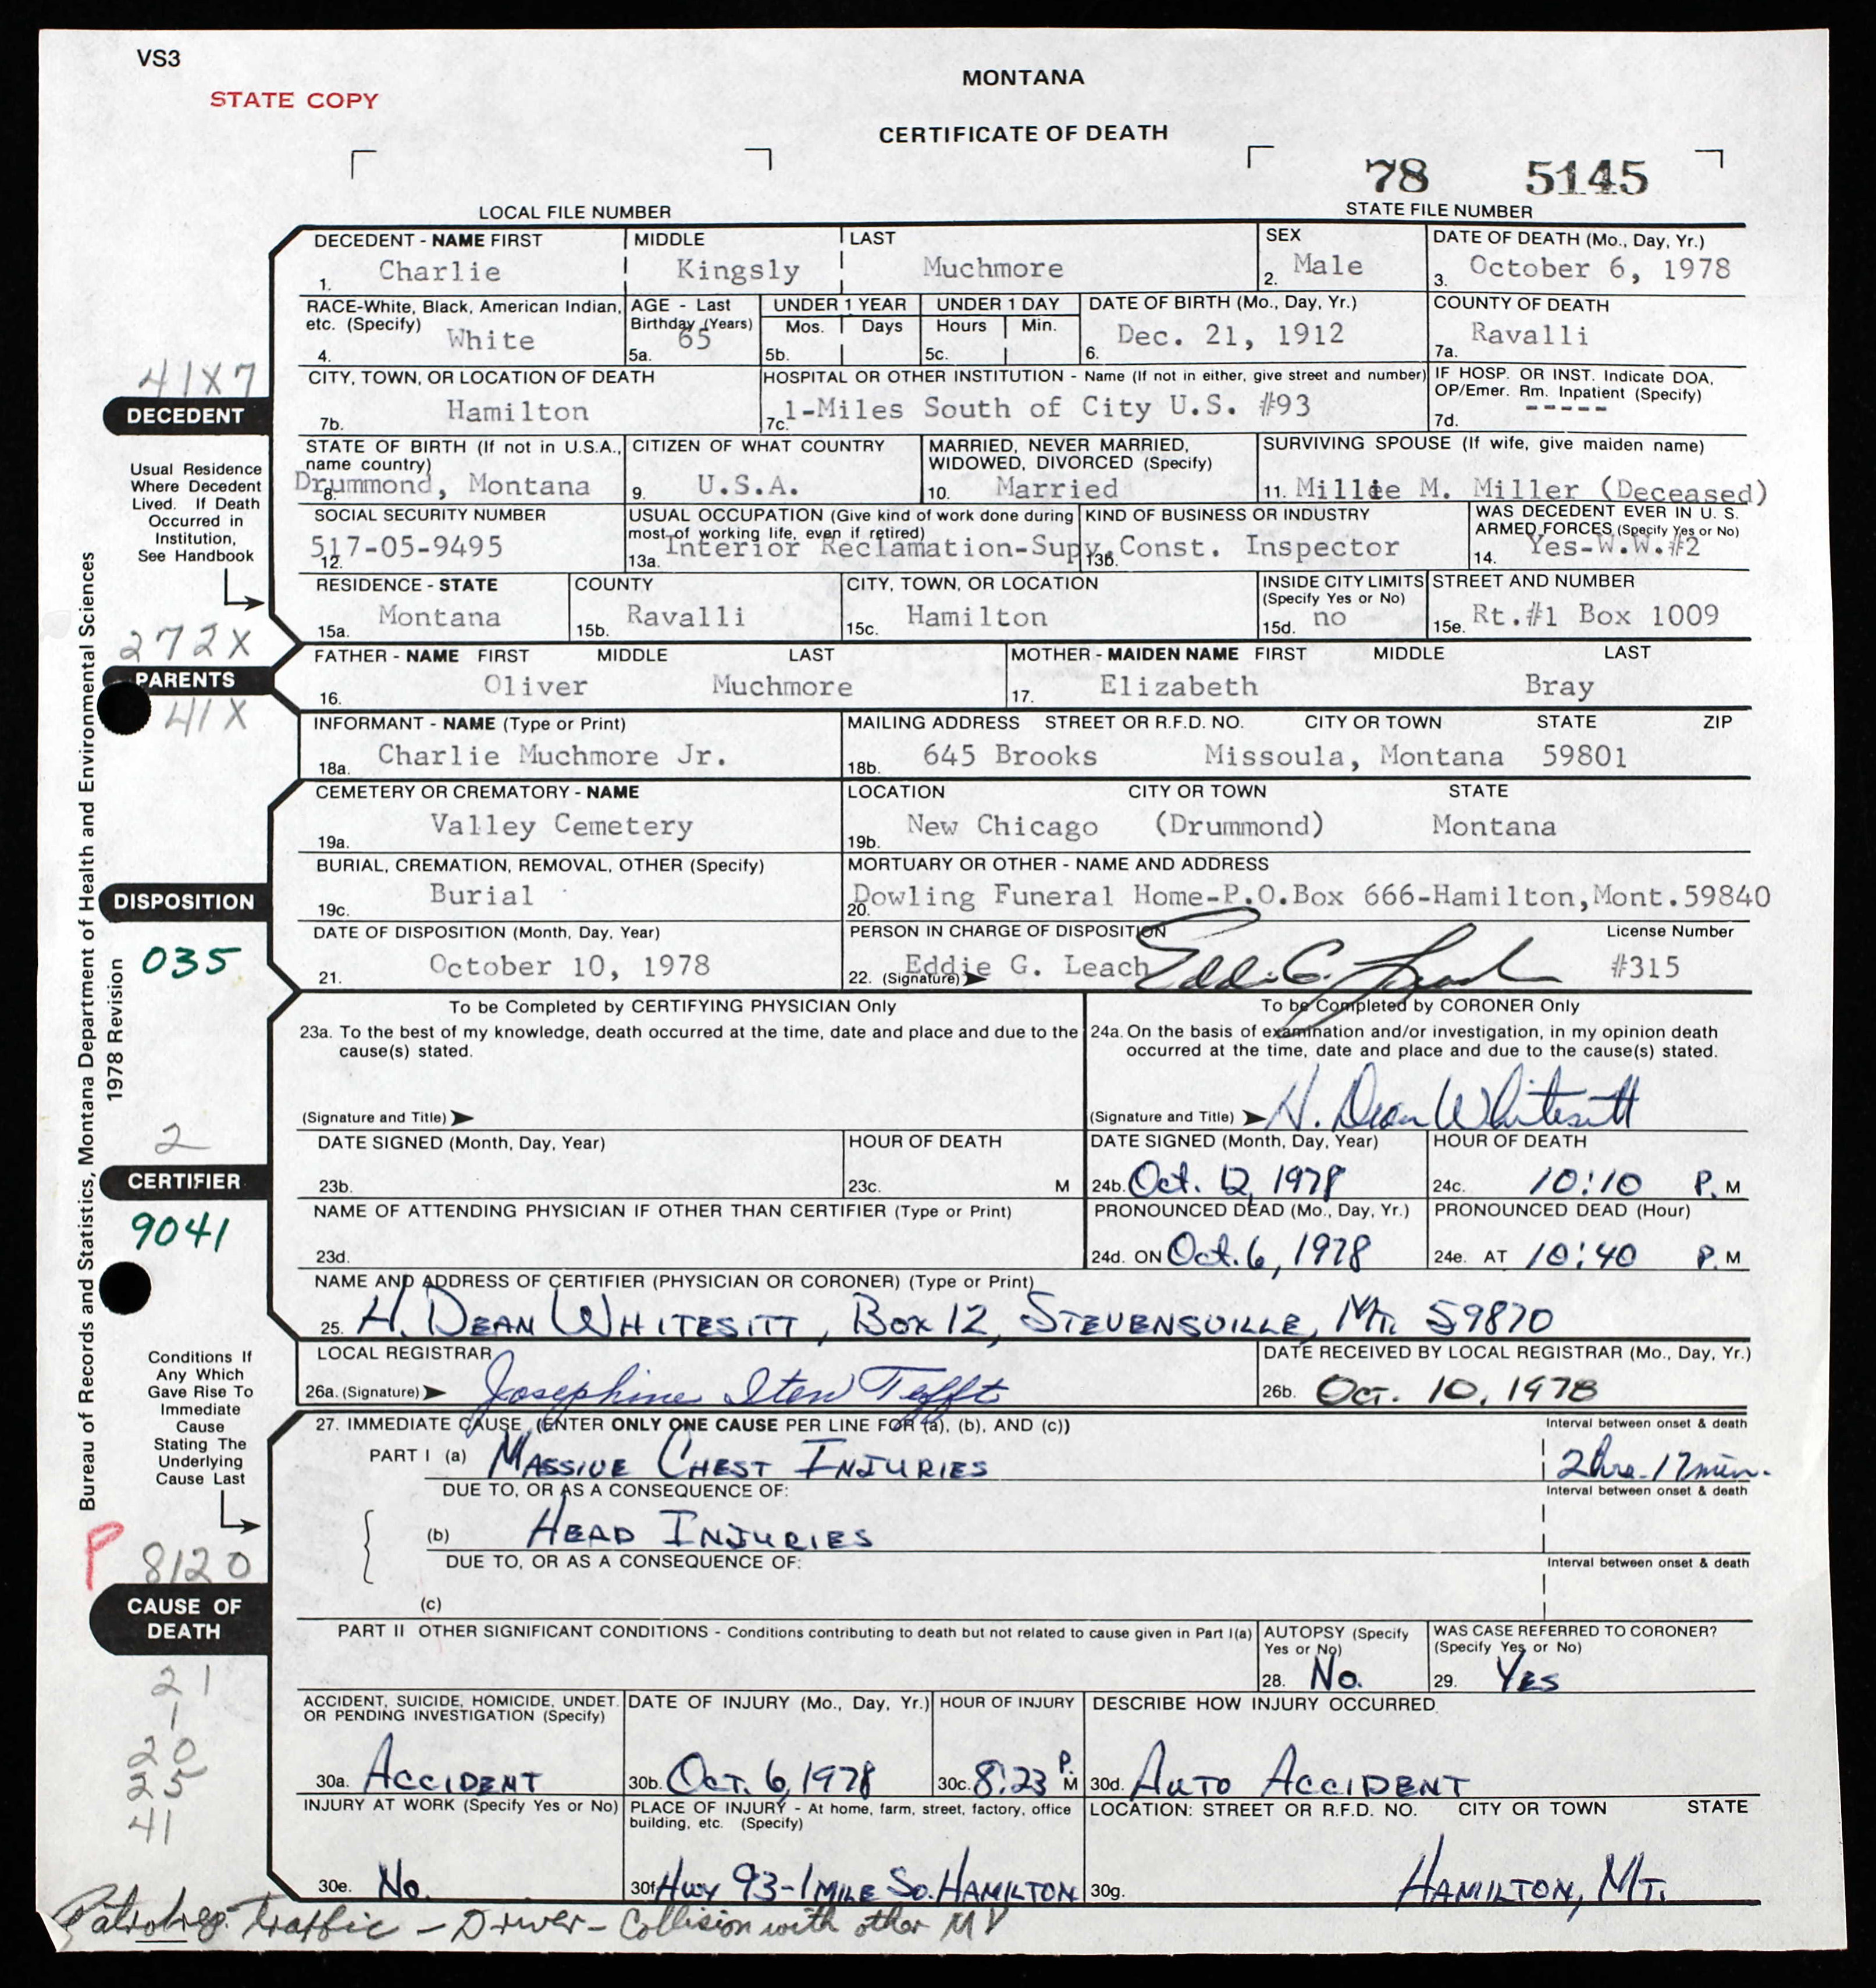 VS3
STATE COPY
MONTANA
CERTIFICATE OF DEATH
78 5145
LOCAL FILE NUMBER STATE FILE NUMBER
DECEDENT - NAME FIRST MIDDLE LAST SEX DATE OF DEATH (Mo., Day, Yr.)
1. Charlie Kingsly Muchmore 2. Male 3. October 6, 1978
RACE-White, Black, American Indian, AGE - Last UNDER 1 YEAR UNDER 1 DAY DATE OF BIRTH (Mo., Day, Yr.) COUNTY OF DEATH
etc. (Specify) Birthday (Years) Mos. Days Hours Min.
4. White 5a. 65 5b. 5c. 6. Dec. 21, 1912 7a. Ravalli
41X7
CITY, TOWN, OR LOCATION OF DEATH HOSPITAL OR OTHER INSTITUTION - Name (If not in either, give street and number) IF HOSP. OR INST. Indicate DOA,
OP/Emer. Rm. Inpatient (Specify)
DECEDENT
7b. Hamilton 7c. 1-Miles South of City U.S. #93 7d. -----
STATE OF BIRTH (If not in U.S.A., CITIZEN OF WHAT COUNTRY MARRIED, NEVER MARRIED, SURVIVING SPOUSE (If wife, give maiden name)
name country) WIDOWED, DIVORCED (Specify)
8. Drummond, Montana 9. U.S.A. 10. Married 11. Millie M. Miller (Deceased)
Usual Residence
Where Decedent
Lived. If Death
Occurred in
Institution,
See Handbook
SOCIAL SECURITY NUMBER USUAL OCCUPATION (Give kind of work done during KIND OF BUSINESS OR INDUSTRY WAS DECEDENT EVER IN U. S.
most of working life, even if retired) ARMED FORCES (Specify Yes or No)
12. 517-05-9495 13a. Interior Reclamation-Supv. 13b. Const. Inspector 14. Yes-W.W.#2
RESIDENCE - STATE COUNTY CITY, TOWN, OR LOCATION INSIDE CITY LIMITS STREET AND NUMBER
(Specify Yes or No)
15a. Montana 15b. Ravalli 15c. Hamilton 15d. no 15e. Rt.#1 Box 1009
272X
PARENTS
41X
FATHER - NAME FIRST MIDDLE LAST MOTHER - MAIDEN NAME FIRST MIDDLE LAST
16. Oliver Muchmore 17. Elizabeth Bray
INFORMANT - NAME (Type or Print) MAILING ADDRESS STREET OR R.F.D. NO. CITY OR TOWN STATE ZIP
18a. Charlie Muchmore Jr. 18b. 645 Brooks Missoula, Montana 59801
CEMETERY OR CREMATORY - NAME LOCATION CITY OR TOWN STATE
19a. Valley Cemetery 19b. New Chicago (Drummond) Montana
BURIAL, CREMATION, REMOVAL, OTHER (Specify) MORTUARY OR OTHER - NAME AND ADDRESS
DISPOSITION
19c. Burial 20. Dowling Funeral Home-P.O.Box 666-Hamilton,Mont.59840
DATE OF DISPOSITION (Month, Day, Year) PERSON IN CHARGE OF DISPOSITION License Number
035
21. October 10, 1978 22. (Signature) Eddie G. Leach Eddie G. Leach #315
To be Completed by CERTIFYING PHYSICIAN Only To be Completed by CORONER Only
23a. To the best of my knowledge, death occurred at the time, date and place and due to the 24a. On the basis of examination and/or investigation, in my opinion death
cause(s) stated. occurred at the time, date and place and due to the cause(s) stated.
(Signature and Title) (Signature and Title) H. Dean Whitesitt
DATE SIGNED (Month, Day, Year) HOUR OF DEATH DATE SIGNED (Month, Day, Year) HOUR OF DEATH
2
CERTIFIER
23b. 23c. M 24b. Oct. 12, 1978 24c. 10:10 P. M
9041
NAME OF ATTENDING PHYSICIAN IF OTHER THAN CERTIFIER (Type or Print) PRONOUNCED DEAD (Mo., Day, Yr.) PRONOUNCED DEAD (Hour)
23d. 24d. ON Oct. 6, 1978 24e. AT 10:40 P. M
NAME AND ADDRESS OF CERTIFIER (PHYSICIAN OR CORONER) (Type or Print)
25. H. DEAN WHITESITT, BOX 12, STEVENSVILLE, MT. 59870
LOCAL REGISTRAR DATE RECEIVED BY LOCAL REGISTRAR (Mo., Day, Yr.)
26a. (Signature) Josephine Iten Tefft 26b. OCT. 10, 1978
Conditions If
Any Which
Gave Rise To
Immediate
Cause
Stating The
Underlying
Cause Last
27. IMMEDIATE CAUSE (ENTER ONLY ONE CAUSE PER LINE FOR (a), (b), AND (c)) Interval between onset & death
PART I (a) MASSIVE CHEST INJURIES 2 hrs. 17 min.
DUE TO, OR AS A CONSEQUENCE OF: Interval between onset & death
(b) HEAD INJURIES
DUE TO, OR AS A CONSEQUENCE OF: Interval between onset & death
(c)
P
8120
CAUSE OF
DEATH
PART II OTHER SIGNIFICANT CONDITIONS - Conditions contributing to death but not related to cause given in Part I(a) AUTOPSY (Specify WAS CASE REFERRED TO CORONER?
Yes or No) (Specify Yes or No)
28. NO. 29. YES
21
1
20
25
41
ACCIDENT, SUICIDE, HOMICIDE, UNDET. DATE OF INJURY (Mo., Day, Yr.) HOUR OF INJURY DESCRIBE HOW INJURY OCCURRED
OR PENDING INVESTIGATION (Specify)
30a. ACCIDENT 30b. OCT. 6, 1978 30c. 8:23 P. M 30d. AUTO ACCIDENT
INJURY AT WORK (Specify Yes or No) PLACE OF INJURY - At home, farm, street, factory, office LOCATION: STREET OR R.F.D. NO. CITY OR TOWN STATE
building, etc. (Specify)
30e. No. 30f. HWY 93-1 MILE SO. HAMILTON 30g. HAMILTON, MT.
Traffic - Driver - Collision with other MV
Bureau of Records and Statistics, Montana Department of Health and Environmental Sciences
1978 Revision